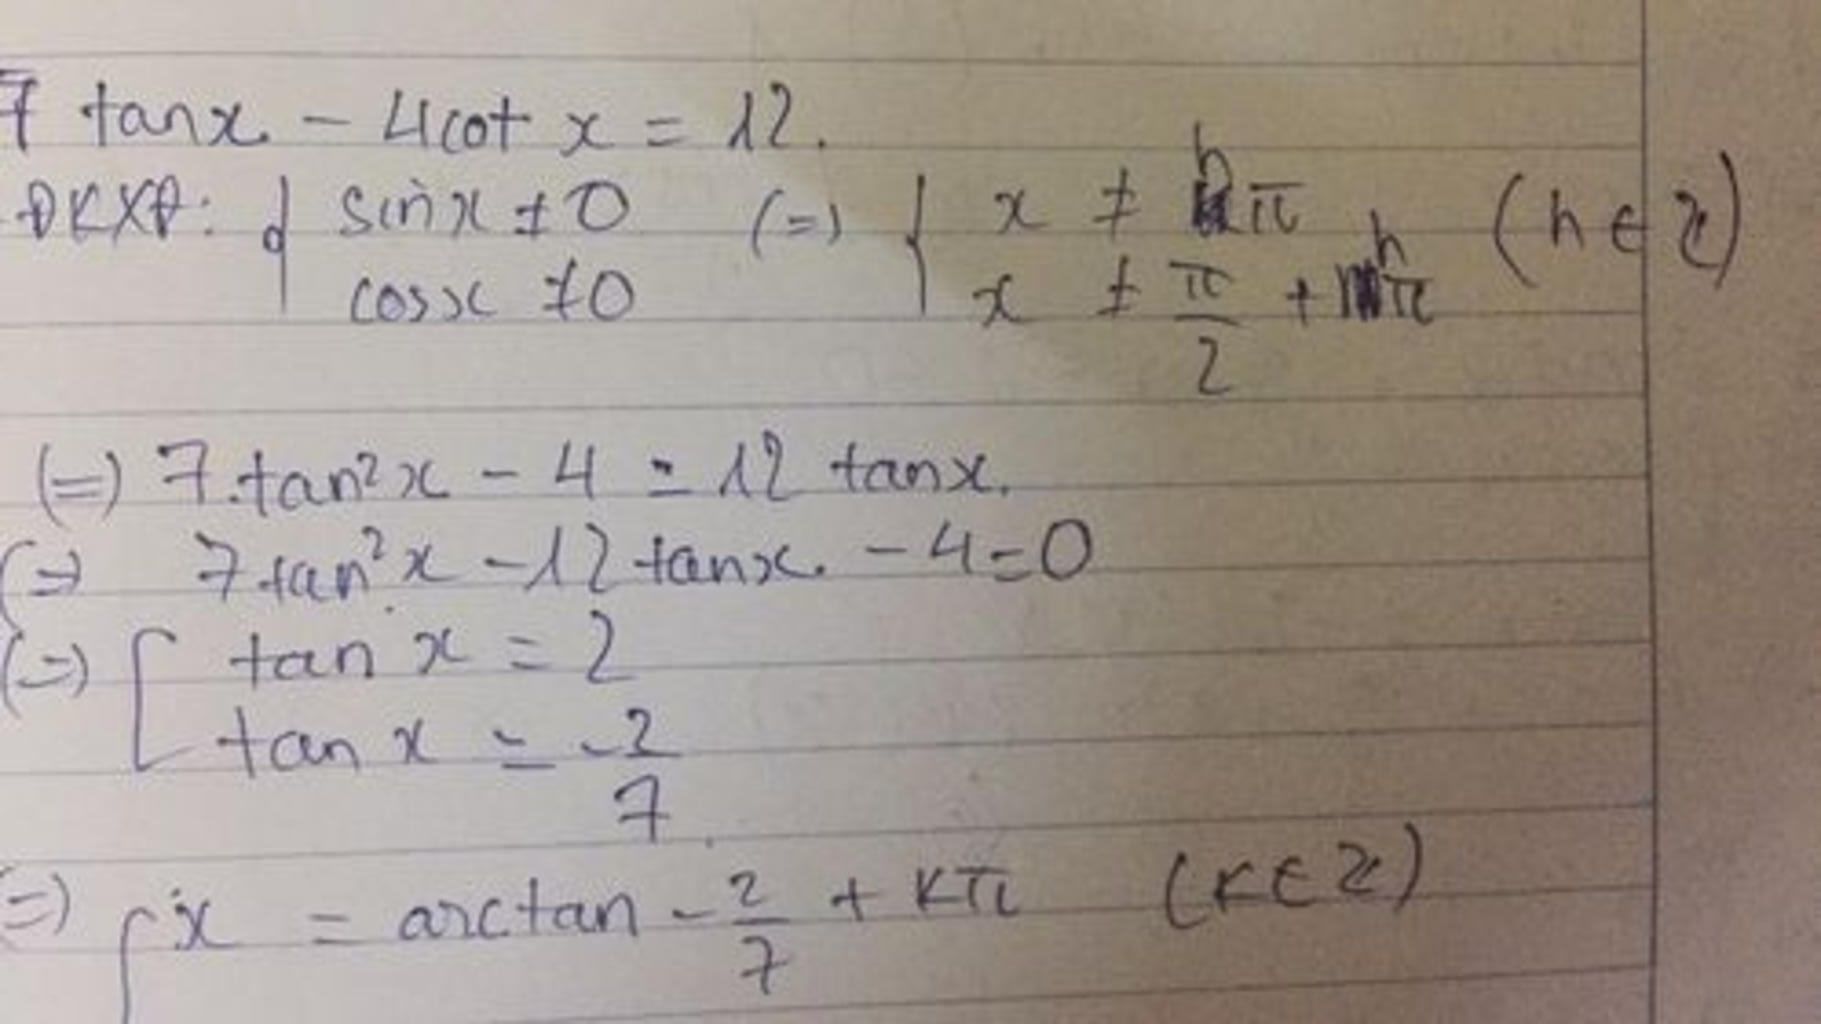 7 tanx - 4cot x = 12.
ĐKXĐ: { sinx ≠ 0 (=) { x ≠ hπ (h ∈ Z)
cosx ≠ 0 x ≠ π/2 + hπ
(=) 7.tan²x - 4 = 12 tanx.
(=) 7tan²x - 12tanx. - 4 = 0
(=) [ tan x = 2
tan x = -2/7
(=) [ x = arctan -2/7 + kπ (k ∈ Z)